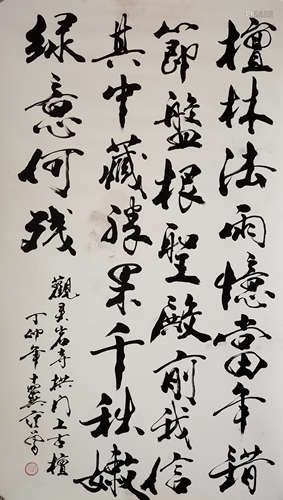 檀林法雨憶當年錯
節盤根聖殿前我信
其中藏勝果千秋嫩
绿意何残
觀灵岩寺拱门上古檀
丁卯年